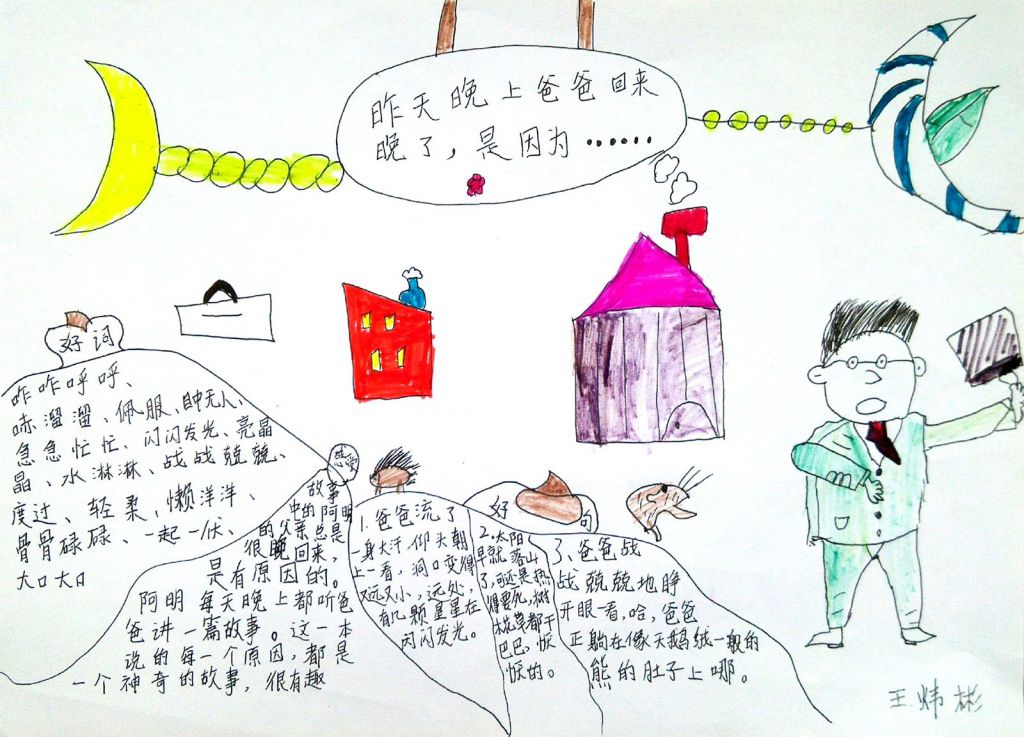 昨天晚上爸爸回来
晚了，是因为……
好词
咋咋呼呼、
赤溜溜、佩服、自中无人、
急急忙忙、闪闪发光、亮晶
晶、水淋淋、战战兢兢、
度过、轻柔，懒洋洋、
骨骨碌碌、一起一伏、
大口大口
感受
故事
中的阿明
的父亲总是
很晚回来，
是有原因的。
阿明每天晚上都听爸
爸讲一篇故事。这一本
说的每一个原因，都是
一个神奇的故事，很有趣
好句
1.爸爸流了
一身大汗，仰头朝
上一看，洞口变得
又远又小，远处，
有几颗星星在
闪闪发光。
2.太阳
早就落山
了，可还是热
得要死，树
木花草都干
巴巴，恹
恹的。
3、爸爸战
战兢兢地睁
开眼一看，哈，爸爸
正躺在像天鹅绒一般的
熊的肚子上哪。
王炜彬